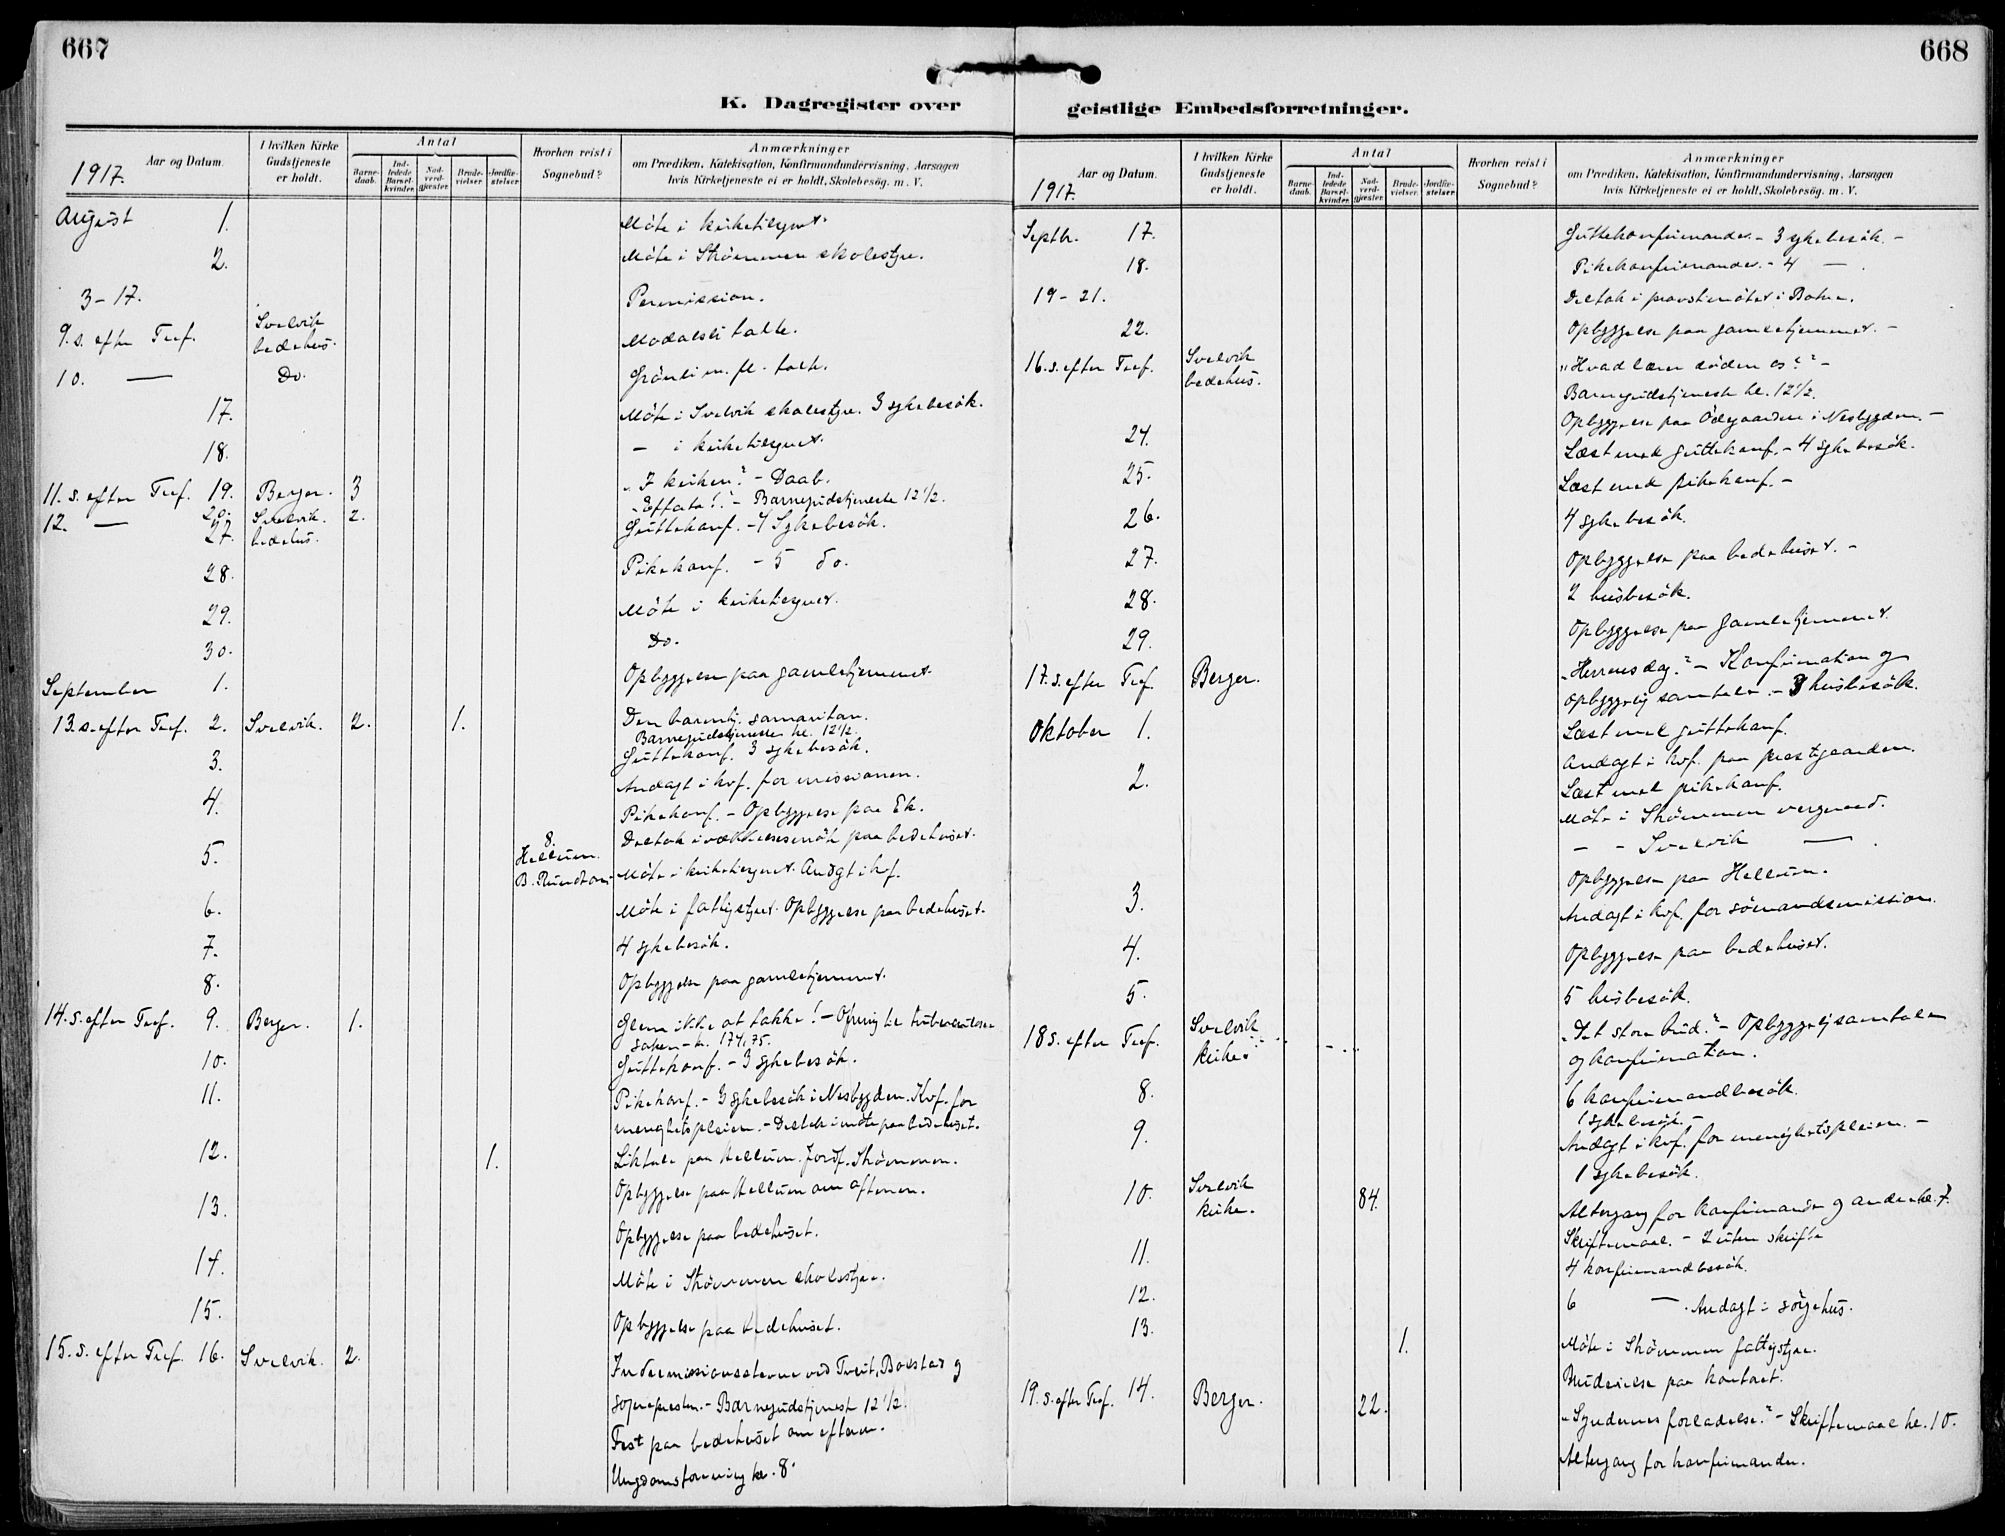 667
K. Dagregister over
Aar og Datum.
1917.
I hvilken Kirke
Gudstjeneste
er holdt.
Antal
Barne-
daab.
Ind-
ledede
Barsel-
kvinder.
Nad-
verd-
gjæster.
Brude-
vielser.
Jordfæ-
stelser.
Hvorhen reist i
Sognebud?
Anmærkninger
om Prædiken, Katekisation, Konfirmandundervisning, Aarsagen
hvis Kirketjeneste ei er holdt, Skolebesøg. m. V.
August 1. Möte i kirketilsynet.
2. Möte i Strömmen skolestyre.
3-17. Permission.
9. s. efter Tref. Svelvik bedehus.
10. — Do.
17. Möte i Svelvik skolestyre. 3 sykebesök.
18. — i kirketilsynet.
11. s. efter Tref. 19. Berger. 3 „I kirken" - Daab.
12. — 20. Svelvik 2. „Effata!" - Barnegudstjeneste 12 1/2.
27. bedehus. Guttekonf. - 4 Sykebesök.
28. Pikekonf. - 5 do.
29. Möte i kirketilsynet.
30. Do.
September 1. Opbyggelse paa gamlehjemmet.
13. s. efter Tref. 2. Svelvik. 2. 1. Den barmhj. samaritan.
Barnegudstjeneste kl. 12 1/2.
3. Guttekonf. 3 sykebesök.
Andagt i kvf. for missionen.
4. Pikekonf. - Opbyggelse paa Ek.
8. Deltok i vækkelsesmöte paa bedehuset.
5. Hellum. B. Möte i kirketilsynet. Andagt i kvf.
6. Möte i fattigstyret. Opbyggelse paa bedehuset.
7. 4 sykebesök.
8. Opbyggelse paa gamlehjemmet.
14. s. efter Tref. 9. Berger. 1. Glem ikke at takke! - Ofring til tuberkulose
saken - kr. 174,75.
10. Guttekonf. - 3 sykebesök.
11. Pikekonf. - 3 sykebesök i Nesbygden. Kvf. for
menighetspleien. - Deltok i möte paa bedehuset.
12. 1. Liktale paa Hellum. Jordf. Strömmen.
Opbyggelse paa Hellum om aftenen.
13. Opbyggelse paa bedehuset.
14. Möte i Strömmen skolestyre.
15. Opbyggelse paa bedehuset.
15. s. efter Tref. 16. Svelvik. 2. Indremissionsstevne ved Tveit, Bolstad og
sognepresten. - Barnegudstjeneste 12 1/2.
Fest paa bedehuset om efterm.
Ungdomsforening kl. 8.
668
geistlige Embedsforretninger.
Aar og Datum.
1917.
I hvilken Kirke
Gudstjeneste
er holdt.
Antal
Barne-
daab.
Ind-
ledede
Barsel-
kvinder.
Nad-
verd-
gjæster.
Brude-
vielser.
Jordfæ-
stelser.
Hvorhen reist i
Sognebud?
Anmærkninger
om Prædiken, Katekisation, Konfirmandundervisning, Aarsagen
hvis Kirketjeneste ei er holdt, Skolebesög. m. V.
Septbr. 17. Guttekonfirmander. - 3 sykebesök. -
18. Pikekonfirmander. - 4 — .
19-21. Deltok i provstimötet i Botne.
22. Opbyggelse paa gamlehjemmet. -
16. s. efter Tref. Svelvik bedehus. „Hvad lærer döden os?" -
Barnegudstjeneste kl. 12 1/2.
Opbyggelse paa Ödegaarden i Nesbygden. -
24. Læst med guttekonf. - 4 sykebesök.
25. Læst med pikekonf. -
26. 4 sykebesök.
27. Opbyggelse paa bedehuset. -
28. 2 husbesök.
29. Opbyggelse paa gamlehjemmet.
17. s. efter Tref. Berger. „Herrens dag." - Konfirmation og
opbyggelig samtale. - 3 husbesök.
Oktober 1. Læst med guttekonf.
Andagt i kvf. paa prestgaarden.
2. Læst med pikekonf.
Möte i Strömmen vergeraad.
- - Svelvik — .
Opbyggelse paa Hellum.
3. Andagt i kvf. for sömandsmission.
4. Opbyggelse paa bedehuset.
5. 5 husbesök.
18 s. efter Tref. Svelvik kirke. „Det store bud." - Opbyggelig samtale
og konfirmation.
8. 6 konfirmandbesök.
1 sykebesök. -
9. Andagt i kvf. for menighetspleien. -
1 sykebesök.
10. Svelvik kirke. 84. Altergang for konfirmander og andre kl. 7.
Skriftemaal. - 2 uten skrifte
11. 4 konfirmandbesök.
12. 6 — . Andagt i sörgehus.
13. 1. Möte i Strömmen fattigstyre.
Brudevielse paa kontoret.
19. s. efter Tref. 14. Berger. 22. „Syndernes forladelse." - Skriftemaal kl. 10.
Altergang for konfirmander.